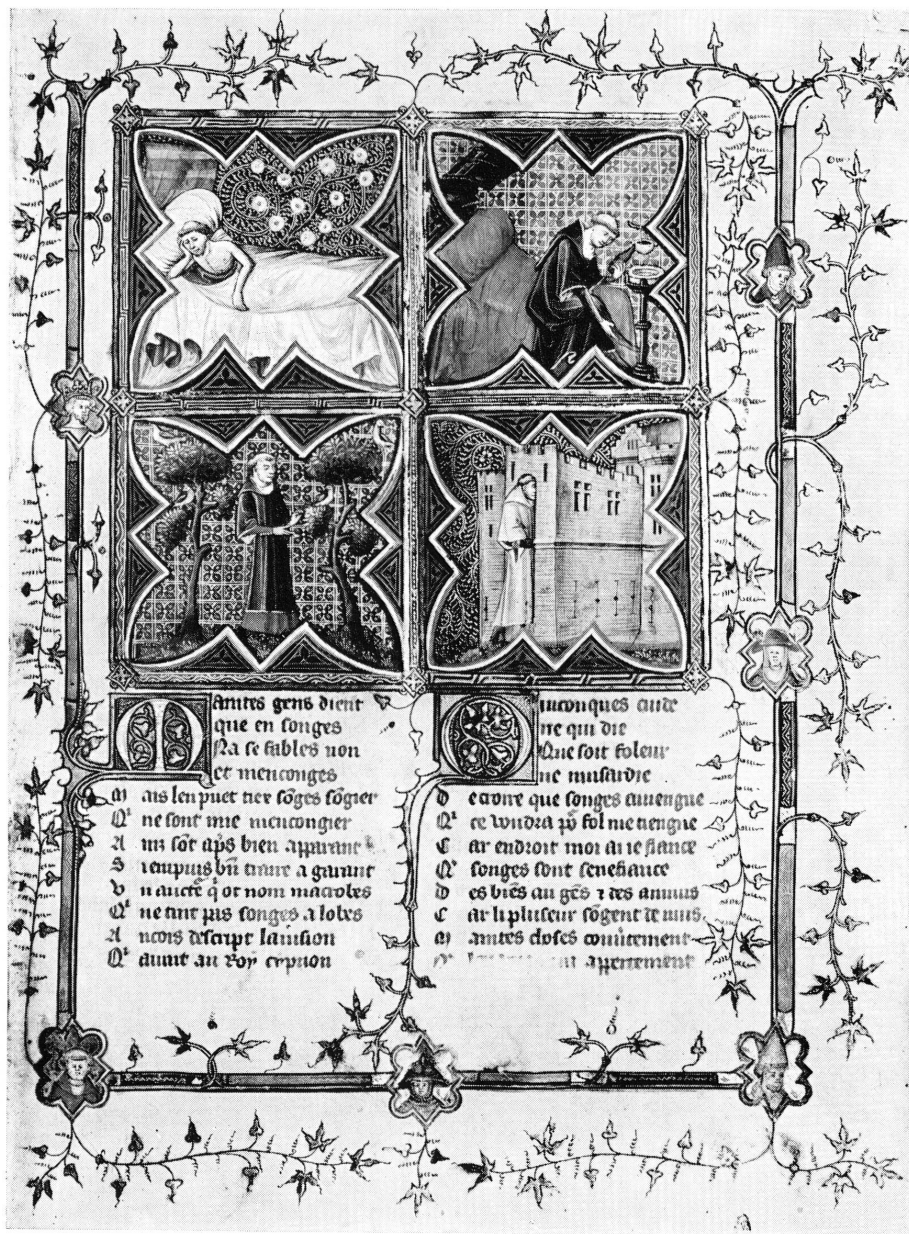 Maintes gens dient
que en songes
Na se fables non
et menconges
Mais len puet tiex sõges sõgier
Qͥ ne sont mie mencongier
Ains sõt ap̃s bien apparant
S ien puis bñ traire a garant
Vn aucte᷒ q̃ ot nom macrobes
Qͥ ne tint pas songes a lobes
Ancois descript lauision
Qͥ auint au Roy cypion
Quiconques cuide
ne qui die
Que soit foleur
ne musardie
De croire que songes auiengne
Qͥ ce voudra po᷒ fol me tiengne
Car endroit moi ai ie fiance
Qͥ songes sont senefiance
Des biẽs au gẽs ⁊ des annuis
Car li pluseur sõgent de nuis
Maintes choses couũtement
appertement